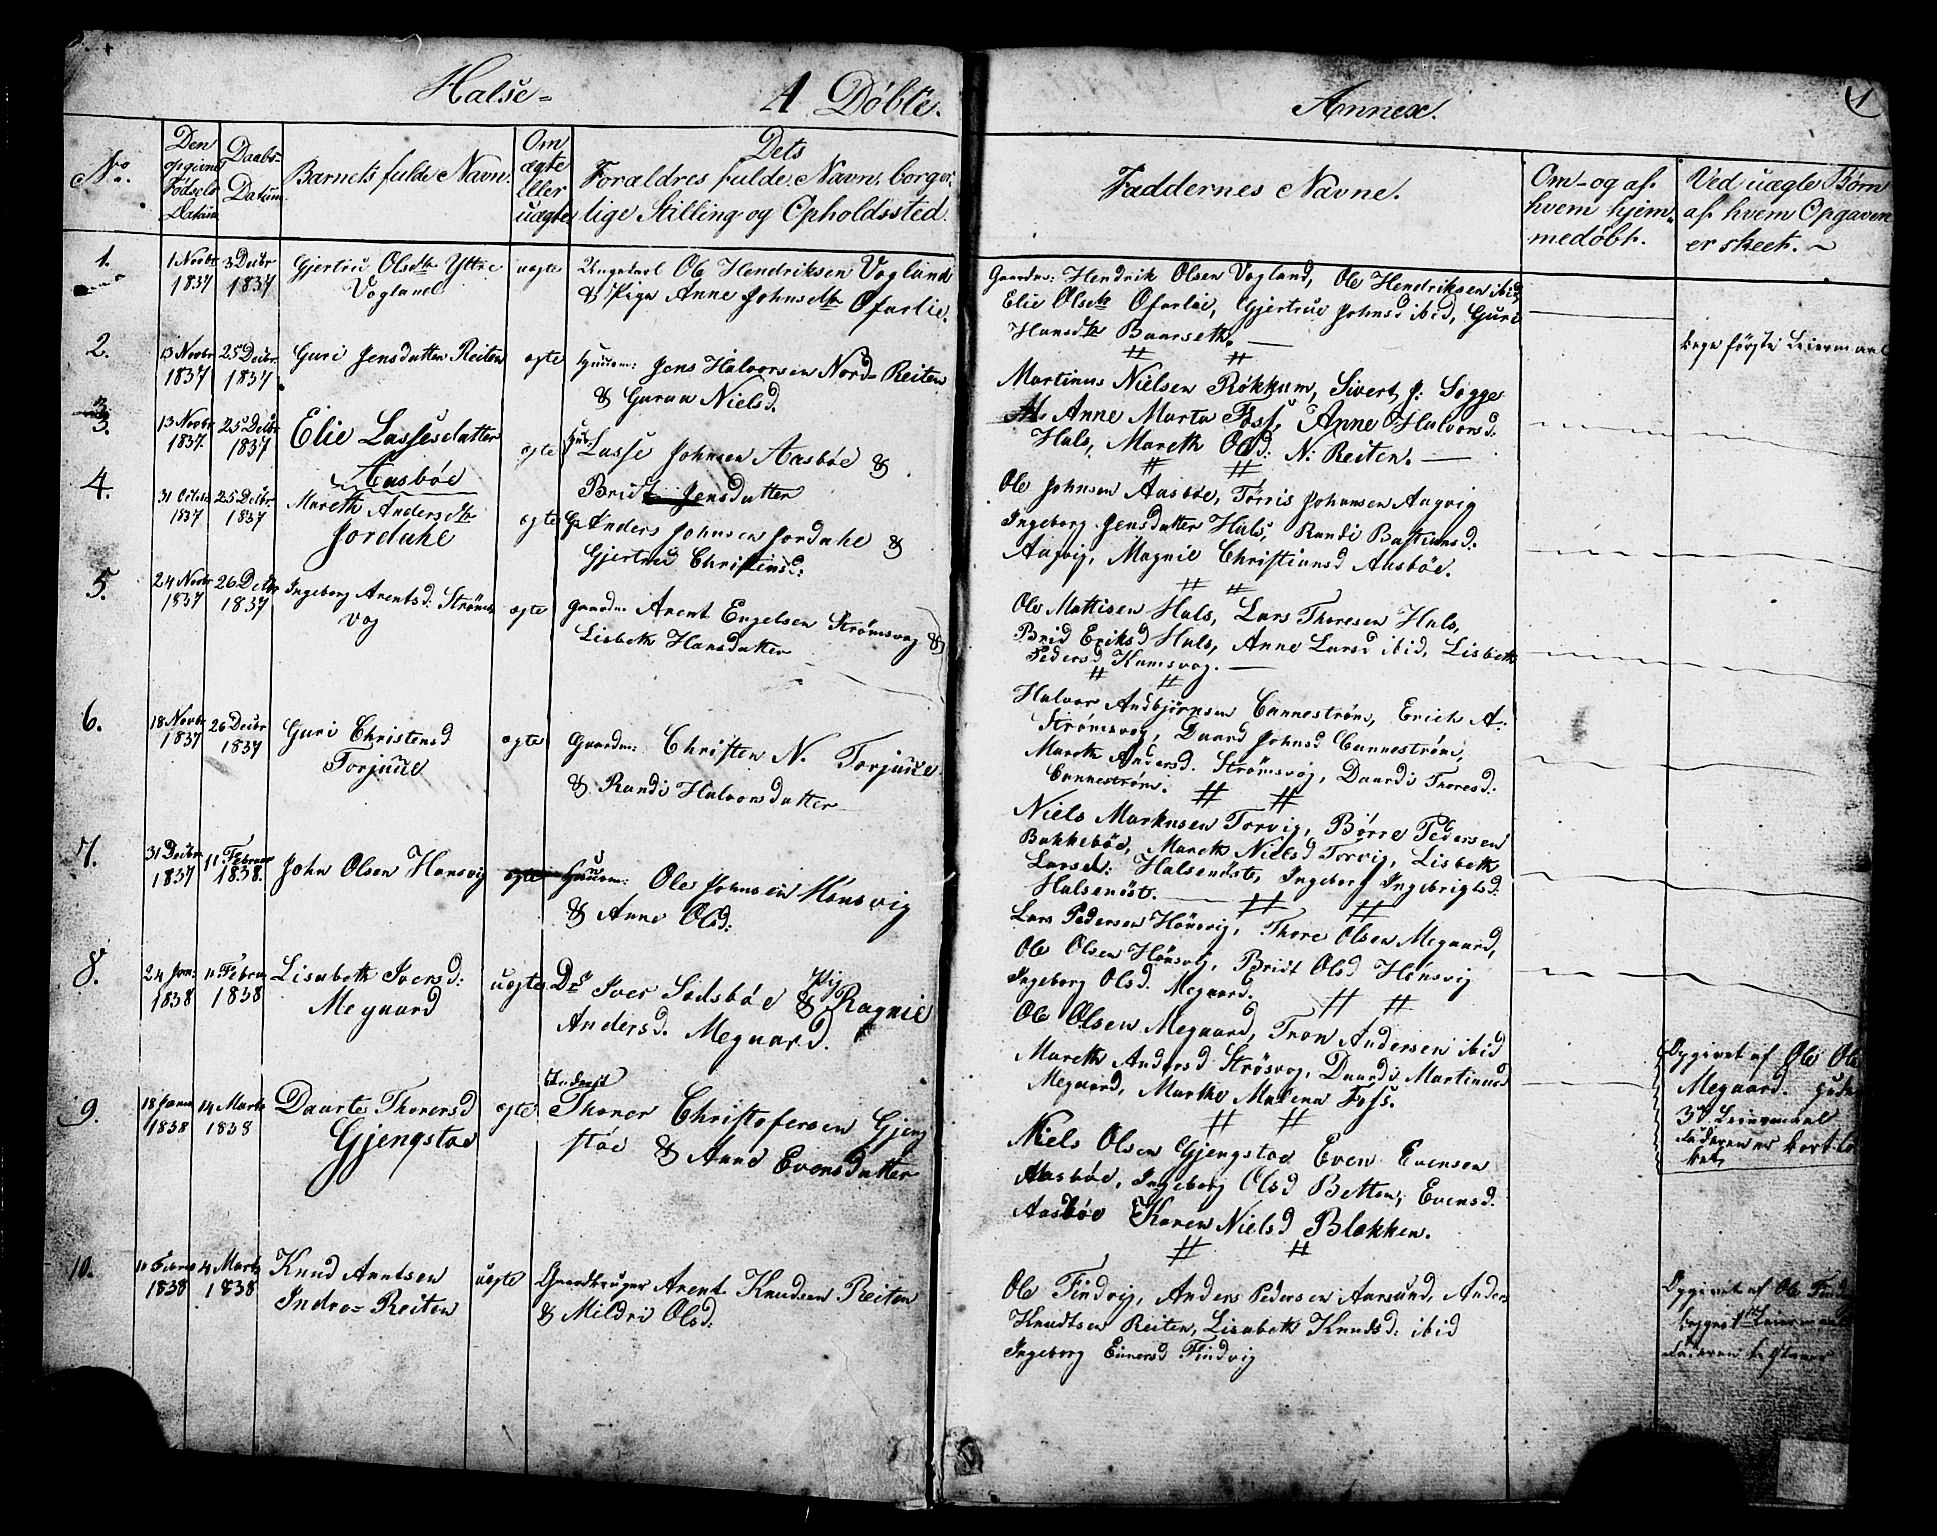 Halse-
A Døbte.
Annex.
1
No.
Den opgivne Fødsels Datum
Daabs-Datum
Barnets fulde Navn.
Om ægte Eller uægte
Dets Foraldres fulde Navn, borger-
lige Stilling og Opholdssted.
Faddernes Navne.
Om- og af
hvem hjem-
medøbt.
Ved uægte Børn
af hvem Opgaven
er skeet.
1. 1 Novbr 1837 3 Decbr 1837 Gjertru Olsdtr Yttre Vogland uegte Ungekarl Ole Hendriksen Vogland
& Pige Anne Johnsdtr Ofarlie.
Gaardm: Hendrik Olsen Vogland, Ole Hendriksen ibid,
Elie Olsdtr Ofarlie, Gjertrue Johnsd ibid, Guri
Hansdtr Baarseth.
begge første Leiermaal
2. 13 Novbr 1837 25 Decbr 1837 Guri Jensdatter Reiten egte Huusm: Jens Halvorsen Nord-Reiten
& Guraa Nielsd.
Martinus Nielsen Røkkum, Sivert J: Sogge
Anne Marta Foss, Anne Halvorsd:
Hals, Mareth Olsd: N: Reiten.
3. 13 Novbr 1837 25 Decbr 1837 Elie Lassesdatter
Aasbøe egte Lasse Johnsen Aasbøe &
Bridt Jensdatter
Ole Johnsen Aasbøe, Torris Johansen Aagvig
Ingeborg Jensdatter Hals, Randi Bastiansd.
Aagvig, Magnie Christiansd Aasbøe.
4. 31 Octobr 1837 25 Decbr 1837 Mareth Andersdtr
Jordahl egte Anders Johnsen Jordahl &
Gjertrud Christensd:
Ole Mattisen Hals, Lars Thoresen Hals,
Brid Eriksd Hals, Anne Larsd ibid, Lisbeth
Pedersd Kamsvog.
5. 24 Novbr 1837 26 Decbr 1837 Ingeborg Arentsd: Strøms
vog egte Gaardm: Arent Engelsen Strømsvog &
Lisbeth Hansdatter
Halvor Andbjørnsen Cannestrøm, Erich A.
Strømsvog, Daard Johnsd Cannestrøm,
Mareth Andersd. Strømsvog, Daardi Thoresd:
Cannestrøm.
6. 18 Novbr 1837 26 Decbr 1837 Guri Christensd
Torjulle egte Gaardm: Christen N. Torjulle
& Randi Halvorsdatter
Niels Markusen Torvig, Børre Pedersen
Bakkebøe, Mareth Nielsd Torvig, Lisbeth
Larsd: Halsenøst, Ingeborg Ingebrigtsd:
Halsenøst.
7. 31 Decbr 1837 11 Februar 1838. John Olsen Hønsvig egte Huusm: Ole Johnsen Hønsvig
& Anne Olsd:
Lars Pedersen Hønsvig, Thore Olsen Megaard,
Ole Olsen Hønsvig, Bridt Olsd Hønsvig
Ingeborg Olsd. Megaard.
8. 24 Jan: 1838 11 Febru 1838 Lisabeth Iversd:
Megaard uegte Iver Sødsbøe & Pig Ragnie
Andersd. Megaard.
Ole Olsen Megaard, Tron Andersen ibid
Mareth Andersd Strøsvog, Daardi Martinusd
Megaard, Marthe Malena Foss.
Opgivet af Ole Ols
Megaard.
3die Leiermaal
9. 18 Janu 1838 14 Marts 1838 Daarte Thorersd
Gjengstøe egte Inderst Thorer Christofersen Gjeng
støe & Anne Evensdatter
Niels Olsen Gjengstøe Even Evensen
Aasbøe, Ingeborg Olsd Betten, Evensd.
Aasbøe Karen Nielsd Blakken.
10. 11 Febru 1838 14 Marts 1838 Knud Arntsen
Indre-Reiten uegte Gaardbruger Arent Knudsen Reiten
& Mildri Olsd:
Ole Findvig, Anders Pedersen Aarsund, Anders
Knudtsen Reiten, Lisabeth Knudsd: ibid
Ingeborg Einersd Findvig
Opgivet af Ole Find
begges 1ste Leiermaal